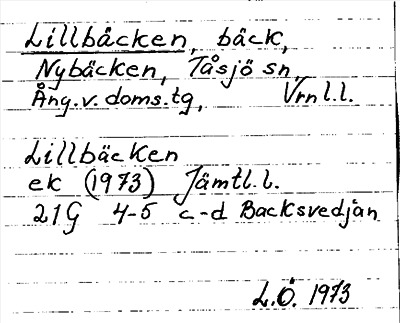 Lillbäcken, bäck,
Nybäcken, Tåsjö sn,
Ång.v.doms.tg, Vrnl.l.
Lillbäcken
ek (1973) Jämtl.l.
21G 4-5 c-d Backsvedjan
L.Ö. 1973